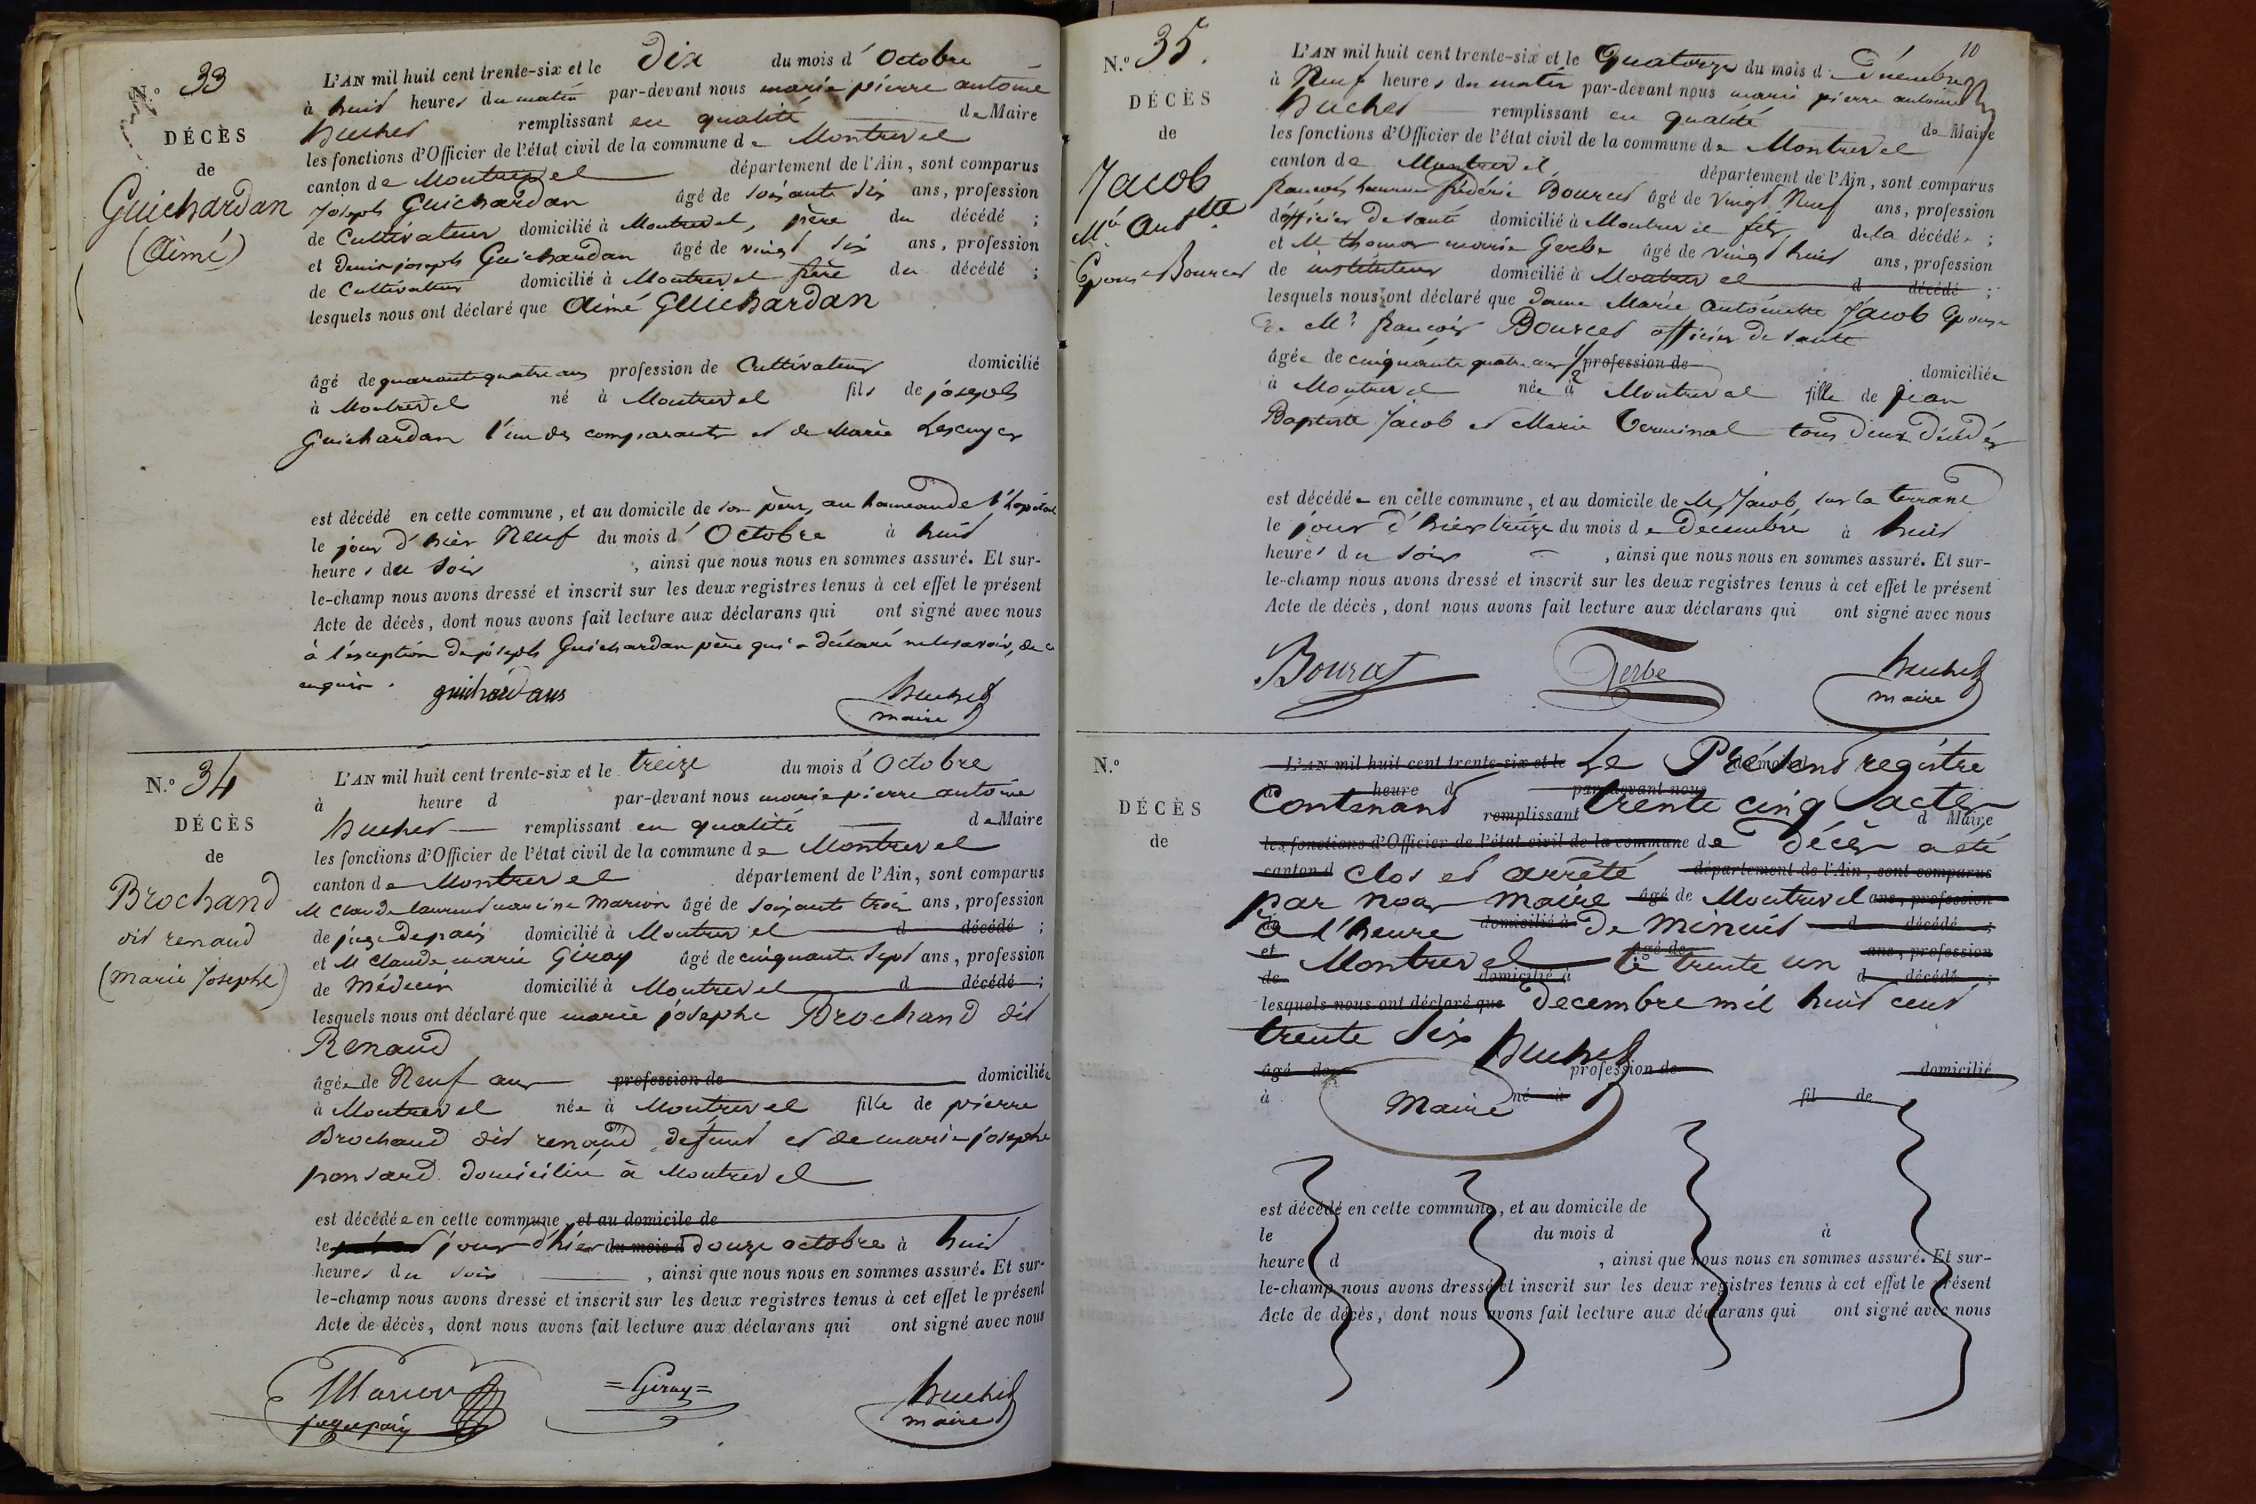 N.º 33
DÉCÈS
de
Guichardan
(Aimé)
L'AN mil huit cent trente-six et le Dix du mois d'Octobre
à huit heures du matin par-devant nous marie pierre antoine
huchet remplissant en qualité de Maire
les fonctions d'Officier de l'état civil de la commune de Montrevel
canton de Montrevel département de l'Ain, sont comparus
Joseph Guichardan âgé de soixante dix ans, profession
de Cultivateur domicilié à Montrevel, père du décédé ;
et Denis joseph Guichardan âgé de vingt six ans, profession
de Cultivateur domicilié à Montrevel frère du décédé ;
lesquels nous ont déclaré que Aimé Guichardan
âgé de quarante quatre ans profession de Cultivateur domicilié
à Montrevel né à Montrevel fils de joseph
Guichardan l'un des comparants et de Marie Lescuyer
est décédé en cette commune, et au domicile de son père, au hameau de l'hopital
le jour d'hier Neuf du mois d'Octobre à huit
heures du soir , ainsi que nous nous en sommes assuré. Et sur-
le-champ nous avons dressé et inscrit sur les deux registres tenus à cet effet le présent
Acte de décès, dont nous avons fait lecture aux déclarans qui ont signé avec nous
à l'exception de joseph Guichardan père qui a déclaré ne le savoir, de ce
enquis.
guichardans
huchet
maire
N.º 34
DÉCÈS
de
Brochand
dit renaud
(Marie Josephe)
L'AN mil huit cent trente-six et le treize du mois d'Octobre
à heure d par-devant nous marie pierre antoine
huchet remplissant en qualité de Maire
les fonctions d'Officier de l'état civil de la commune de Montrevel
canton de Montrevel département de l'Ain, sont comparus
M Claude laurent Marion âgé de soixante trois ans, profession
de juge de paix domicilié à Montrevel d décédé ;
et M Claude marie Giray âgé de cinquante sept ans, profession
de Médecin domicilié à Montrevel d décédé ;
lesquels nous ont déclaré que marie josephe Brochand dit
Renaud
âgée de Neuf ans profession de domiciliée
à Montrevel née à Montrevel fille de pierre
Brochand dit renaud, defunt et de marie josephe
ponsard domiciliée à Montrevel
est décédée en cette commune, et au domicile de
le jour d'hier du mois d douze octobre à huit
heures du soir , ainsi que nous nous en sommes assuré. Et sur-
le-champ nous avons dressé et inscrit sur les deux registres tenus à cet effet le présent
Acte de décès, dont nous avons fait lecture aux déclarans qui ont signé avec nous
Marion
juge de paix
=Giray=
huchet
maire
10
N.º 35.
DÉCÈS
de
Jacob
Mie Antte
Epouse Bourcet
L'AN mil huit cent trente-six et le Quatorze du mois de Décembre
à Neuf heures du matin par-devant nous marie pierre antoine
huchet remplissant en qualité de Maire
les fonctions d'Officier de l'état civil de la commune de Montrevel
canton de Montrevel département de l'Ain, sont comparus
françois frédéric Bourcet âgé de vingt Neuf ans, profession
d'officier de santé domicilié à Montrevel fils de la décédée ;
et M thomas marie Gerbe âgé de vingt huit ans, profession
de instituteur domicilié à Montrevel d décédé ;
lesquels nous ont déclaré que dame Marie Antoinette Jacob Epouse
de Mr françois Bourcet officier de santé
âgée de cinquante quatre ans profession de domiciliée
à Montrevel née à Montrevel fille de Jean
Baptiste Jacob et Marie Verminal tous deux décédés
est décédée en cette commune, et au domicile de Jacob, sur la terrane
le jour d'hier treize du mois de Decembre à huit
heures du soir , ainsi que nous nous en sommes assuré. Et sur-
le-champ nous avons dressé et inscrit sur les deux registres tenus à cet effet le présent
Acte de décès, dont nous avons fait lecture aux déclarans qui ont signé avec nous
Bourcet
Gerbe
huchet
maire
N.º
DÉCÈS
de
L'AN mil huit cent trente-six et le Le Présent registre
à heure d par-devant nous
Contenant trente cinq actes
remplissant d Maire
les fonctions d'Officier de l'état civil de la commune de Décès a été
canton d clos et arrêté département de l'Ain, sont comparus
par nous maire âgé de Montrevel ans, profession
à l'heure domicilié à de minuit d décédé ;
et Montrevel âgé de le trente un ans, profession
de domicilié à d décédé ;
lesquels nous ont déclaré que Decembre mil huit cent
trente Six
huchet
âgé de profession de domicilié
à né à fil de
Maire
est décédé en cette commune, et au domicile de
le du mois d à
heure d , ainsi que nous nous en sommes assuré. Et sur-
le-champ nous avons dressé et inscrit sur les deux registres tenus à cet effet le présent
Acte de décès, dont nous avons fait lecture aux déclarans qui ont signé avec nous